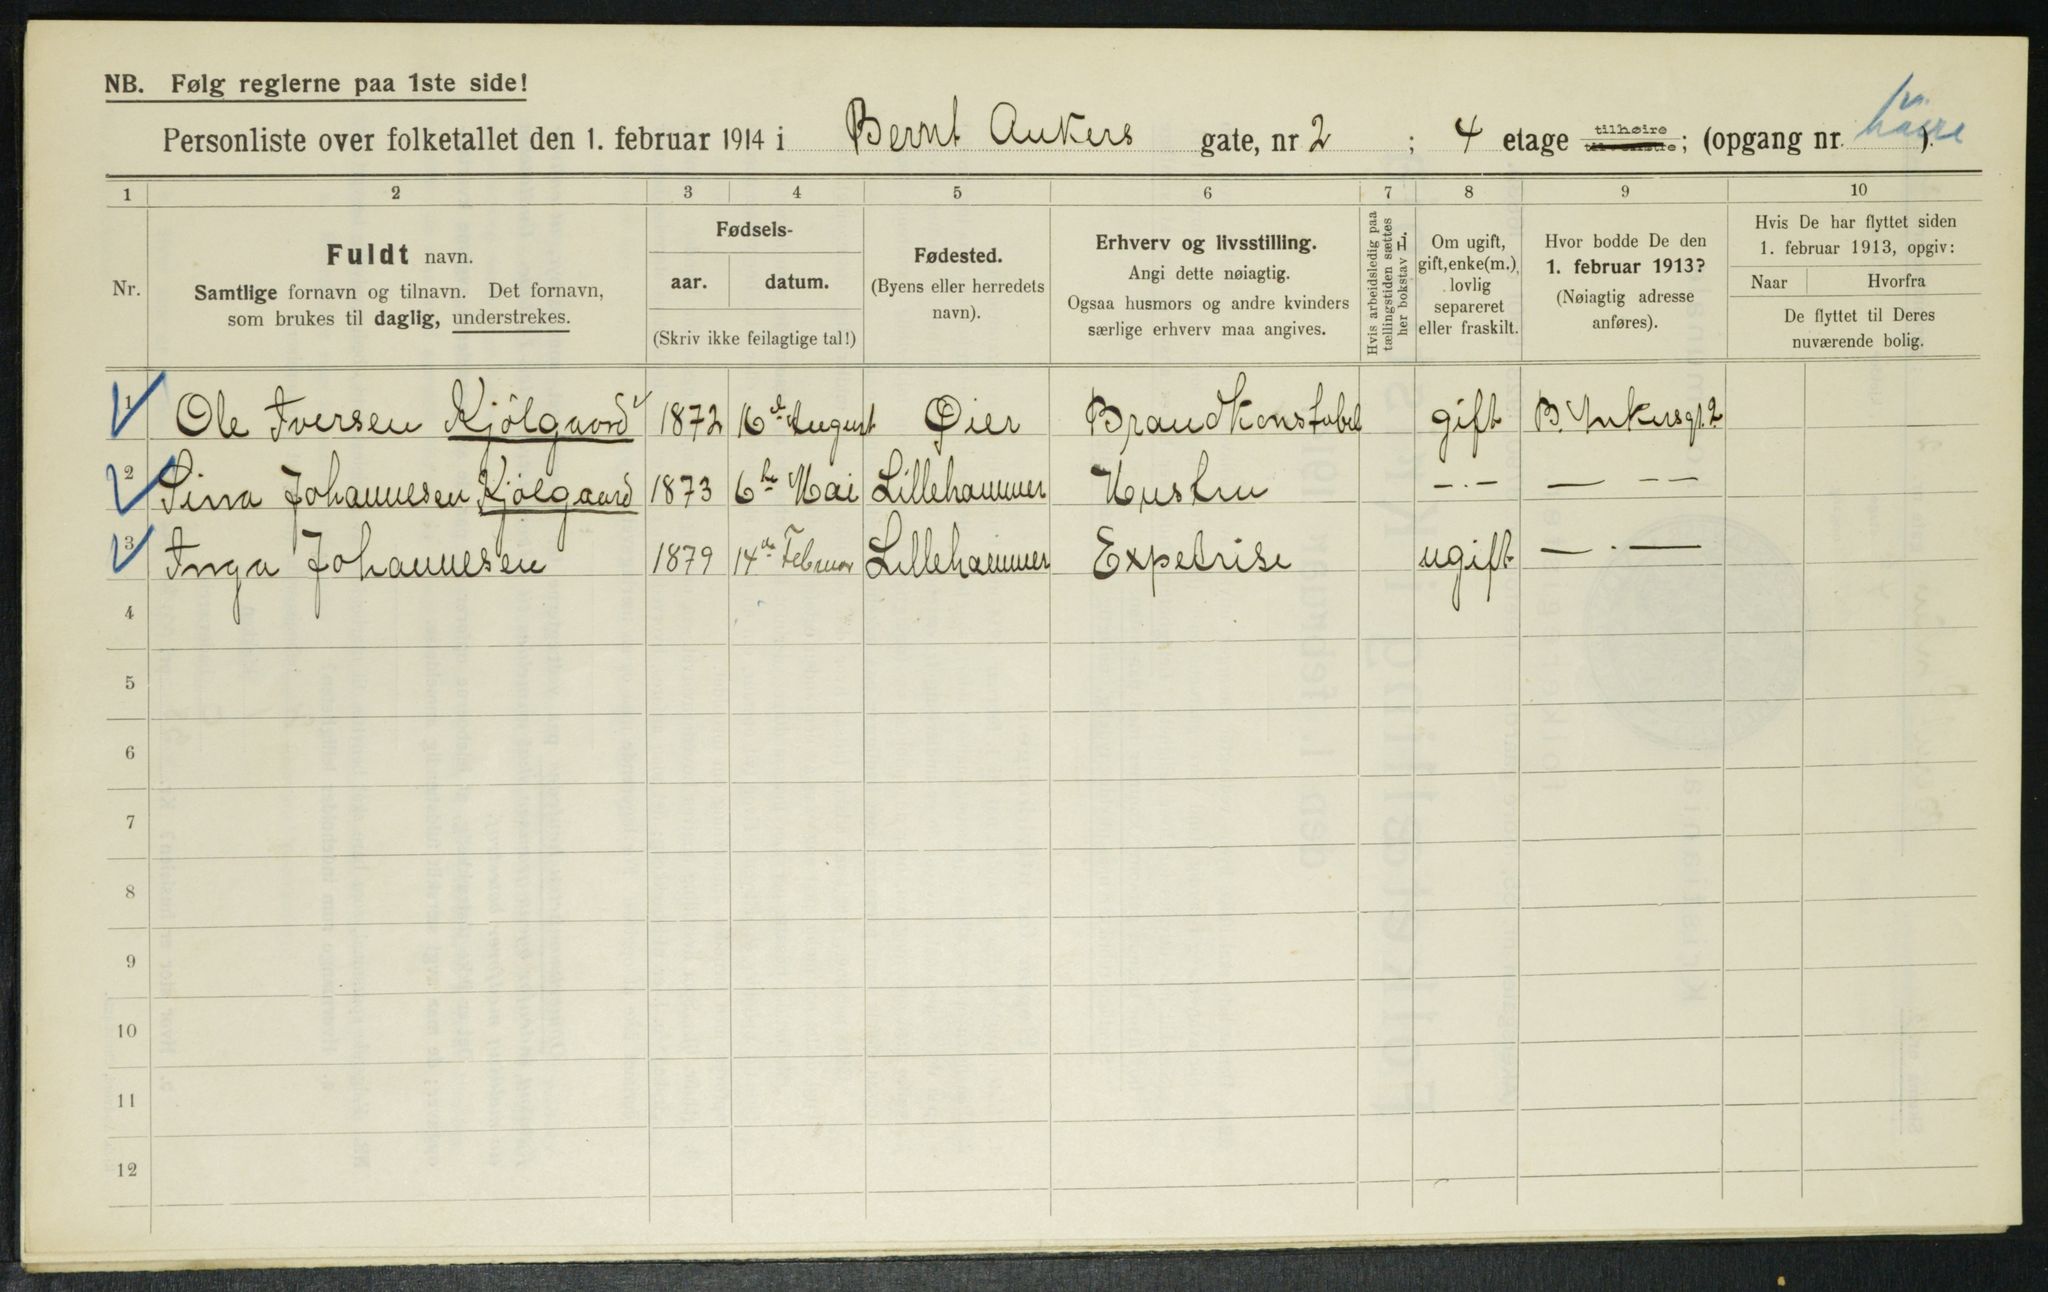 NB. Følg reglerne paa 1ste side!
Personliste over folketallet den 1. februar 1914 i Bernt Ankers gate, nr 2 ; 4 etage tilhøire ; (opgang nr. ).
1 2 3 4 5 6 7 8 9 10
Nr.
Fuldt navn.
Samtlige fornavn og tilnavn. Det fornavn,
som brukes til daglig, understrekes.
Fødsels-
aar. datum.
(Skriv ikke feilagtige tal!)
Fødested.
(Byens eller herredets
navn).
Erhverv og livsstilling.
Angi dette nøiagtig.
Ogsaa husmors og andre kvinders
særlige erhverv maa angives.
Hvis arbeidsledig paa
tællingstiden sættes
her bokstav L.
Om ugift,
gift, enke(m.),
lovlig
separeret
eller fraskilt.
Hvor bodde De den
1. februar 1913?
(Nøiagtig adresse
anføres).
Hvis De har flyttet siden
1. februar 1913, opgiv:
Naar Hvorfra
De flyttet til Deres
nuværende bolig.
1 Ole Iversen Kjölgaard 1872 16de August Øier Brandkonstabel gift B. Ankersgt. 2
2 Sina Johannesen Kjölgaard 1873 6te Mai Lillehammer Hustru -·- — - -
3 Inga Johannesen 1879 14de Februar Lillehammer Expetrise ugift — · —
4
5
6
7
8
9
10
11
12